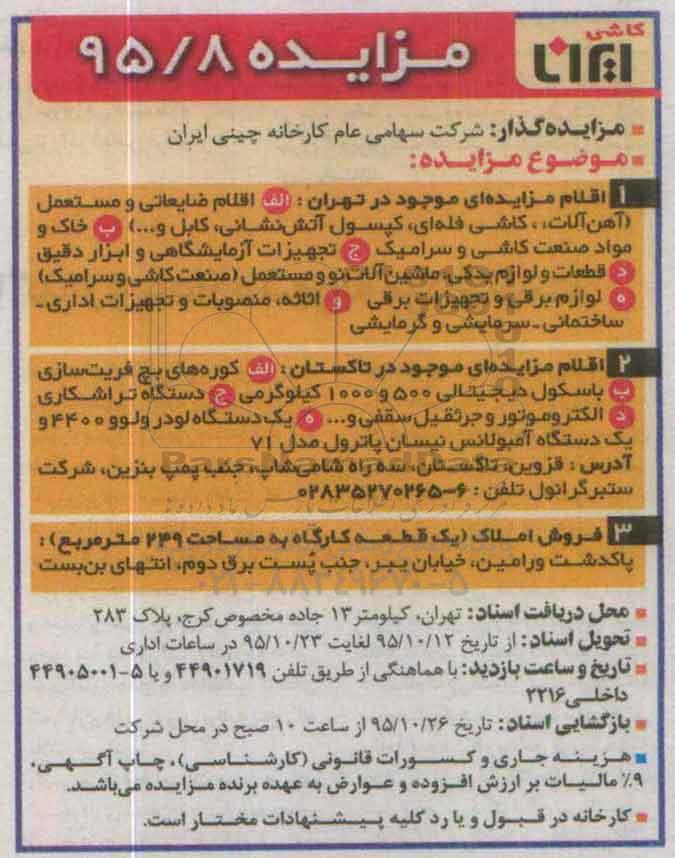 کاشی
ایرانا
مزایده ۹۵/۸
مزایده‌گذار: شرکت سهامی عام کارخانه چینی ایران
موضوع مزایده:
۱ اقلام مزایده‌ای موجود در تهران: الف اقلام ضایعاتی و مستعمل
(آهن‌آلات، کاشی فله‌ای، کپسول آتش‌نشانی، کابل و...) ب خاک و
مواد صنعت کاشی و سرامیک ج تجهیزات آزمایشگاهی و ابزار دقیق
د قطعات و لوازم یدکی، ماشین‌آلات نو و مستعمل (صنعت کاشی و سرامیک)
ه لوازم برقی و تجهیزات برقی و اثاثه، منصوبات و تجهیزات اداری-
ساختمانی-سرمایشی و گرمایشی
۲ اقلام مزایده‌ای موجود در تاکستان: الف کوره‌های بچ فریت‌سازی
ب باسکول دیجیتالی ۵۰۰ و ۱۰۰۰ کیلوگرمی ج دستگاه تراشکاری
د الکتروموتور و جرثقیل سقفی و... ه یک دستگاه لودر ولوو ۴۴۰۰ و
یک دستگاه آمبولانس نیسان پاترول مدل ۷۱
آدرس: قزوین، تاکستان، سه راه شامی‌شاپ، جنب پمپ بنزین، شرکت
ستبر گرانول تلفن: ۶-۰۲۸۳۵۲۷۰۲۶۵
۳ فروش املاک (یک قطعه کارگاه به مساحت ۲۴۹ مترمربع):
پاکدشت ورامین، خیابان یبر، جنب پُست برق دوم، انتهای بن‌بست
محل دریافت اسناد: تهران، کیلومتر ۱۳ جاده مخصوص کرج، پلاک ۲۸۳
تحویل اسناد: از تاریخ ۹۵/۱۰/۱۲ لغایت ۹۵/۱۰/۲۳ در ساعات اداری
تاریخ و ساعت بازدید: با هماهنگی از طریق تلفن ۴۴۹۰۱۷۱۹ و یا ۵-۴۴۹۰۵۰۰۱
داخلی ۲۲۱۶
بازگشایی اسناد: تاریخ ۹۵/۱۰/۲۶ از ساعت ۱۰ صبح در محل شرکت
هزینه جاری و کسورات قانونی (کارشناسی)، چاپ آگهی،
۹٪ مالیات بر ارزش افزوده و عوارض به عهده برنده مزایده می‌باشد.
کارخانه در قبول و یا رد کلیه پیشنهادات مختار است.
ParsNamadData
۰۲۱-۸۸۳۴۹۶۷۰-۵